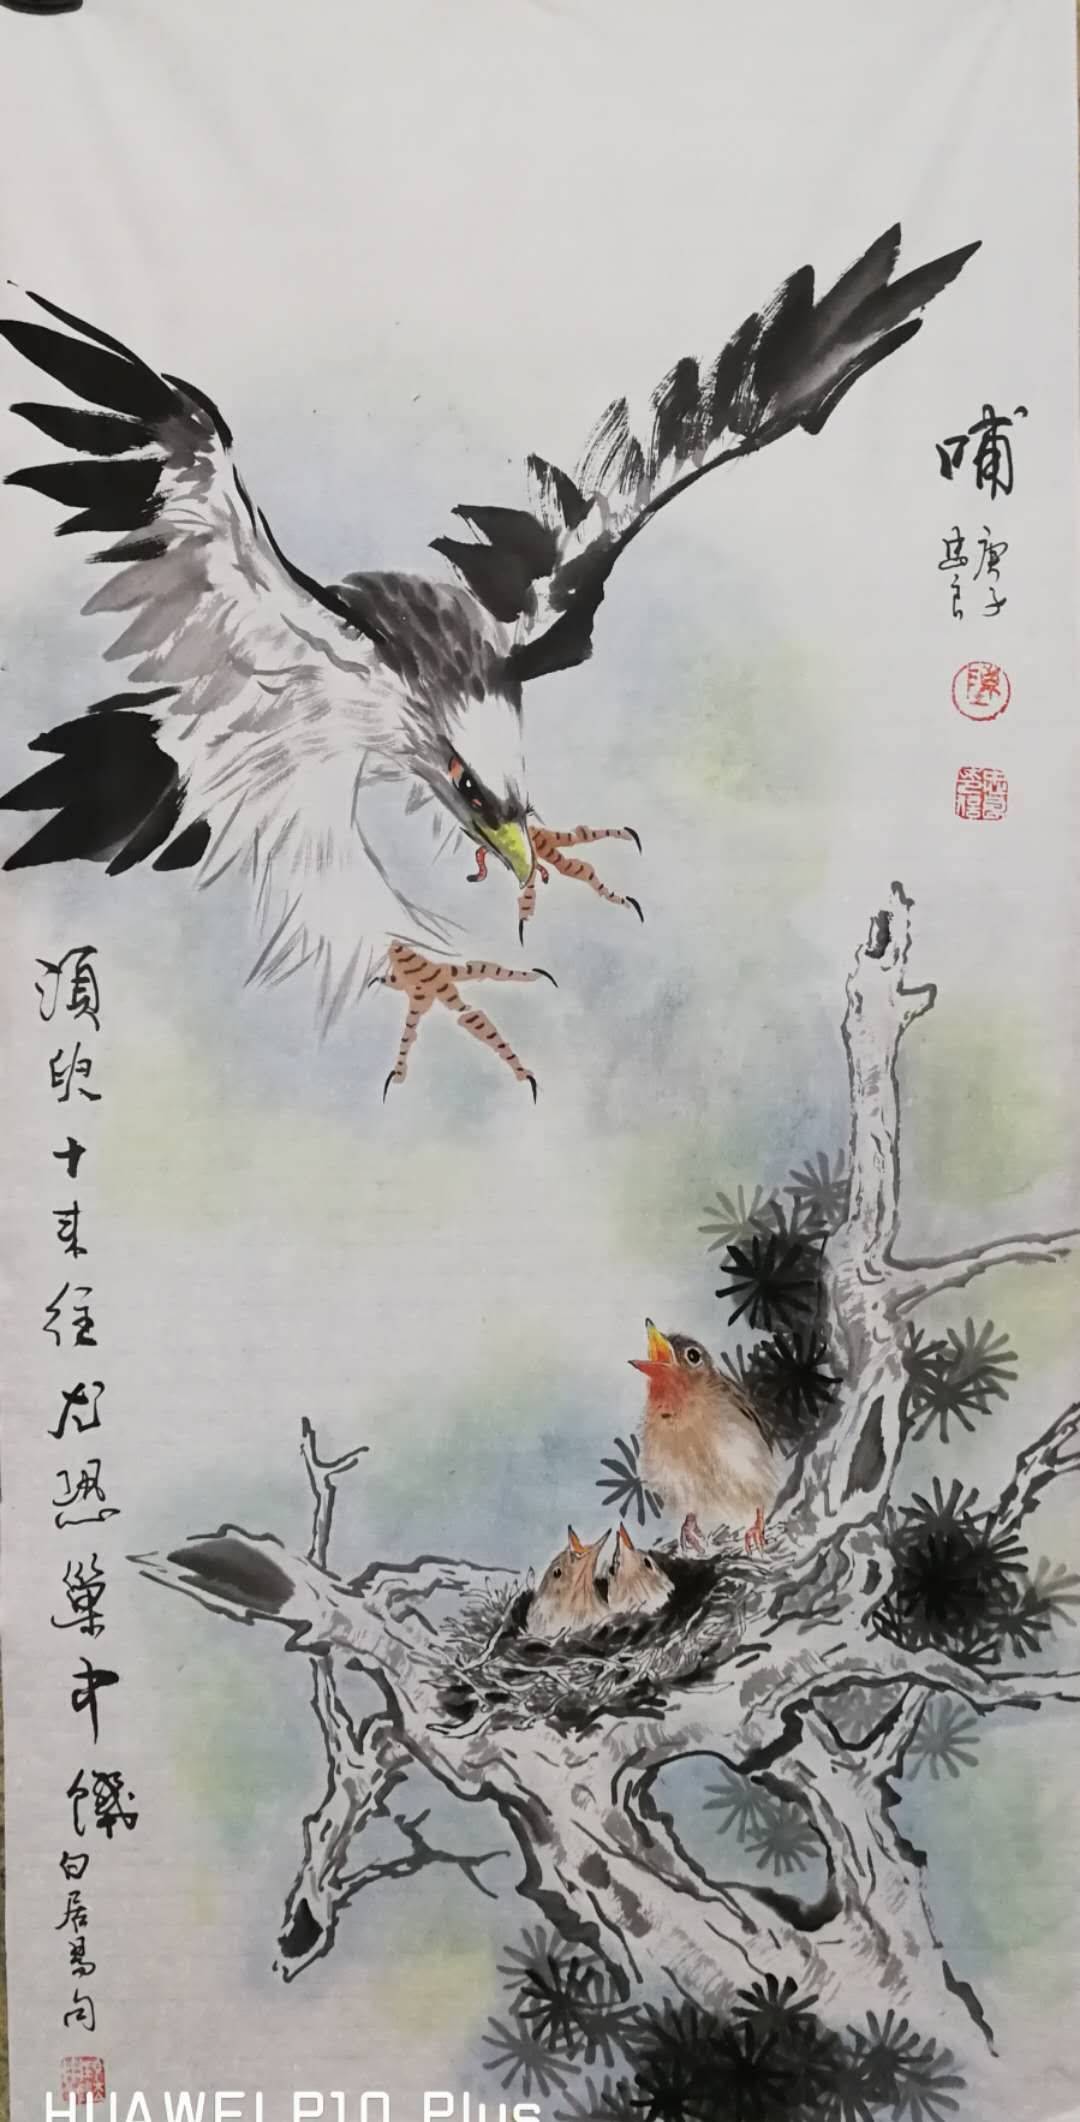 哺
庚子
忠良
须臾十来往犹恐巢中饑
白居易句
HUAWEI P10 Plus